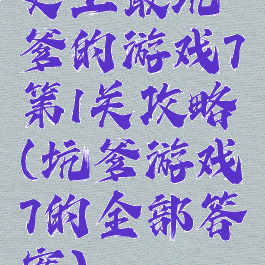 史上最坑
爹的游戏7
第1关攻略
(坑爹游戏
7的全部答
案)